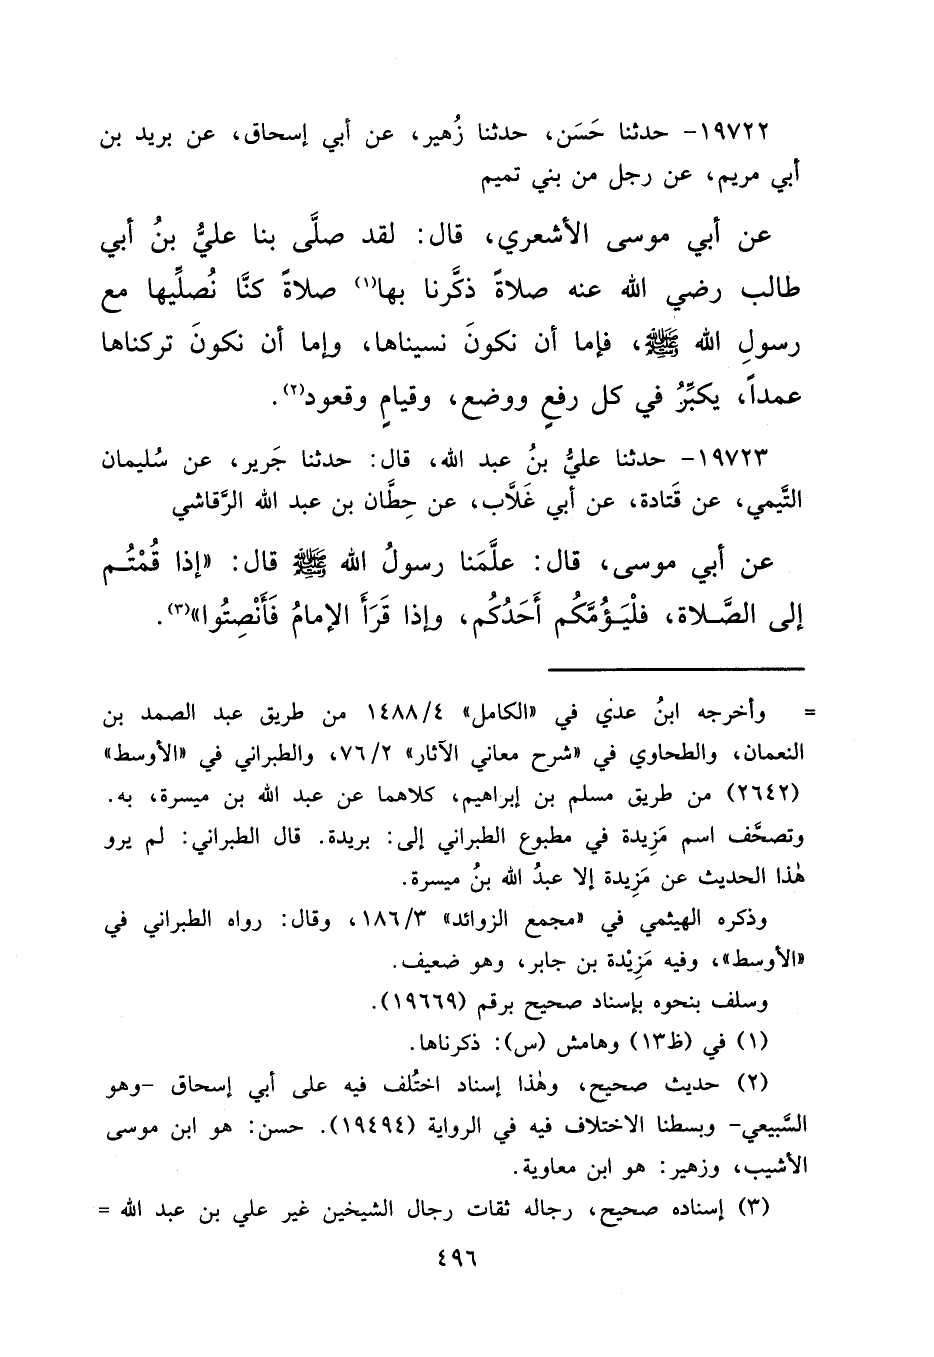 ١٩٧٢٢- حدثنا حَسَن، حدثنا زُهير، عن أبي إسحاق، عن بريد بن
أبي مريم، عن رجل من بني تميم
عن أبي موسى الأشعري، قال: لقد صلَّى بنا عليُّ بنُ أبي
طالب رضي الله عنه صلاةً ذكَّرنا بها(١) صلاةً كنَّا نُصلِّيها مع
رسولِ الله ﷺ، فإما أن نكونَ نسيناها، وإما أن نكونَ تركناها
عمداً، يكبِّرُ في كل رفعٍ ووضع، وقيامٍ وقعود(٢).
١٩٧٢٣- حدثنا عليُّ بنُ عبد الله، قال: حدثنا جَرير، عن سُليمان
التَّيمي، عن قَتادة، عن أبي غَلَّاب، عن حِطَّان بن عبد الله الرَّقاشي
عن أبي موسى، قال: علَّمَنا رسولُ الله ﷺ قال: «إذا قُمْتُم
إلى الصَّلاة، فلْيَؤُمَّكُم أَحَدُكُم، وإذا قَرَأَ الإمامُ فَأَنْصِتُوا»(٣).
= وأخرجه ابنُ عدي في «الكامل» ١٤٨٨/٤ من طريق عبد الصمد بن
النعمان، والطحاوي في «شرح معاني الآثار» ٧٦/٢، والطبراني في «الأوسط»
(٢٦٤٢) من طريق مسلم بن إبراهيم، كلاهما عن عبد الله بن ميسرة، به.
وتصحَّف اسم مَزِيدة في مطبوع الطبراني إلى: بريدة. قال الطبراني: لم يرو
هٰذا الحديث عن مَزِيدة إلا عبدُ الله بنُ ميسرة.
وذكره الهيثمي في «مجمع الزوائد» ١٨٦/٣، وقال: رواه الطبراني في
«الأوسط»، وفيه مَزِيْدة بن جابر، وهو ضعيف.
وسلف بنحوه بإسناد صحيح برقم (١٩٦٦٩).
(١) في (ظ١٣) وهامش (س): ذكرناها.
(٢) حديث صحيح، وهٰذا إسناد اختُلف فيه على أبي إسحاق -وهو
السَّبيعي- وبسطنا الاختلاف فيه في الرواية (١٩٤٩٤). حسن: هو ابن موسى
الأشيب، وزهير: هو ابن معاوية.
(٣) إسناده صحيح، رجاله ثقات رجال الشيخين غير علي بن عبد الله =
٤٩٦